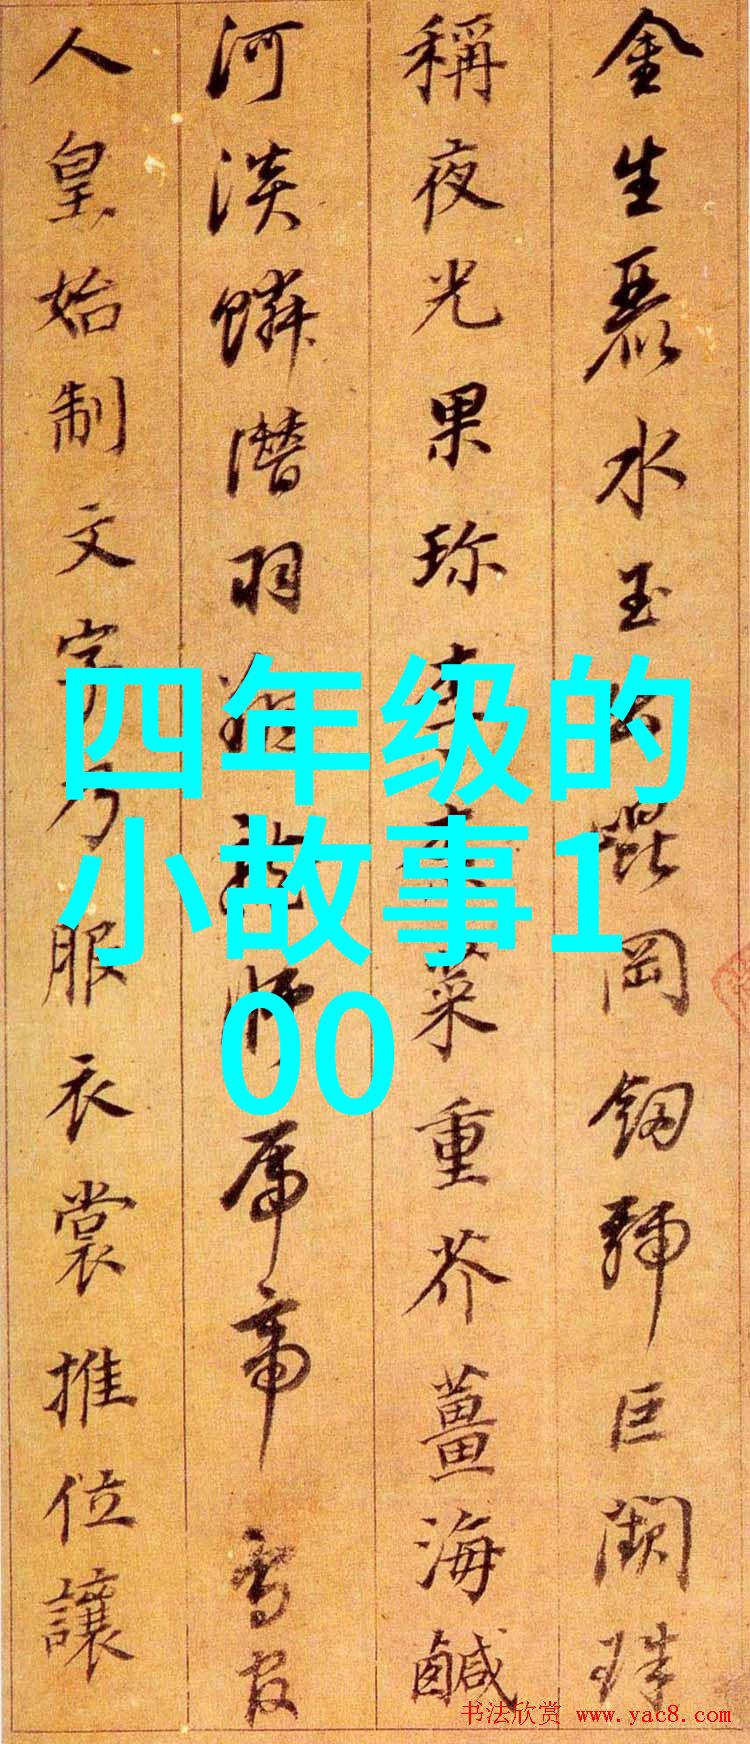 金生麗水玉出崑岡劒號巨闕珠
稱夜光果珎李柰菜重芥薑海鹹
河淡鱗潛羽翔龍師帝鳥官
人皇始制文字乃服衣裳推位讓
四年级的
小故事1
00
书法欣赏 www.yac8.com